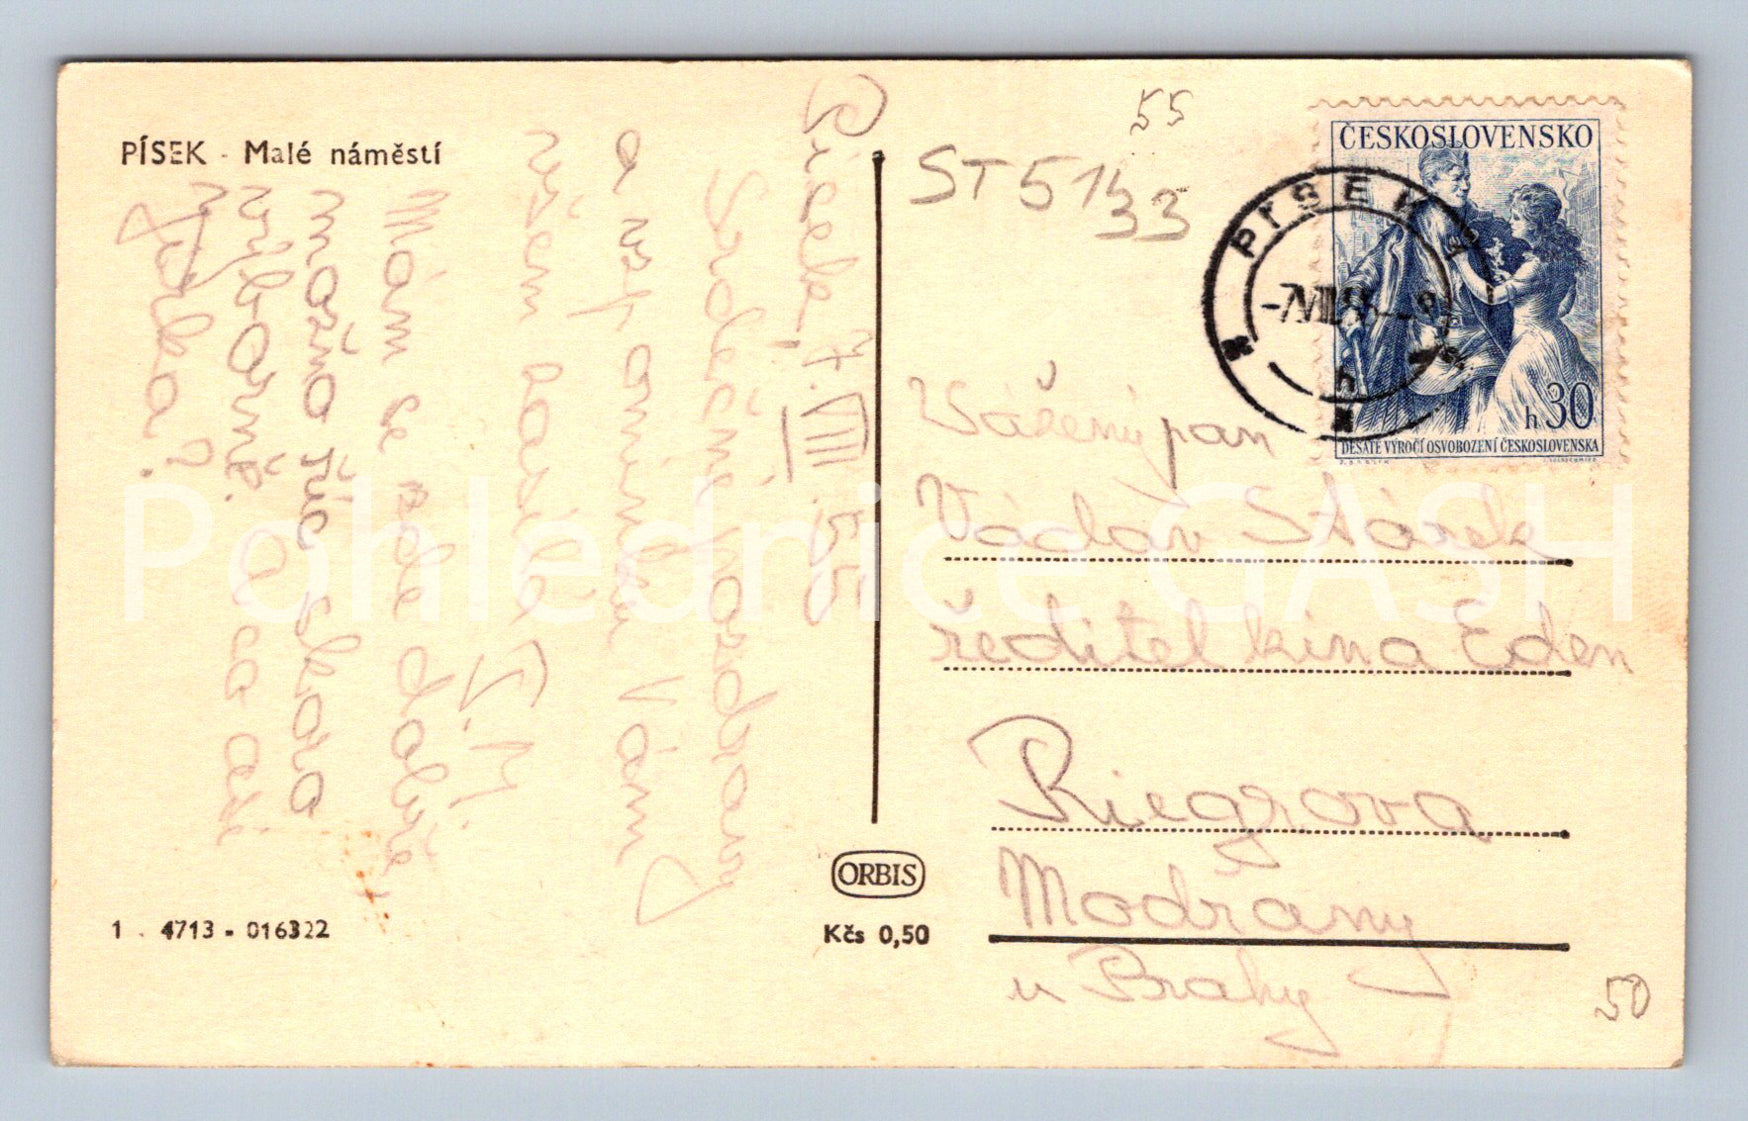 PÍSEK - Malé náměstí
Písek 7.VIII.55
Srdečné pozdravy
a vzpomínku Vám
všem posílá
J. M.
Mám se zde dobře,
možno říc skoro
výborně. A co asi
Jirka?
1 - 4713 - 016322
ORBIS
Kčs 0,50
55
ST 51
33
ČESKOSLOVENSKO
h 30
DESÁTÉ VÝROČÍ OSVOBOZENÍ ČESKOSLOVENSKA
PÍSEK 1
-7.VIII.55
h
Vážený pan
Václav Stárek
ředitel kina Eden
Riegrova
Modřany
u Prahy
50
Pohlednice GASH